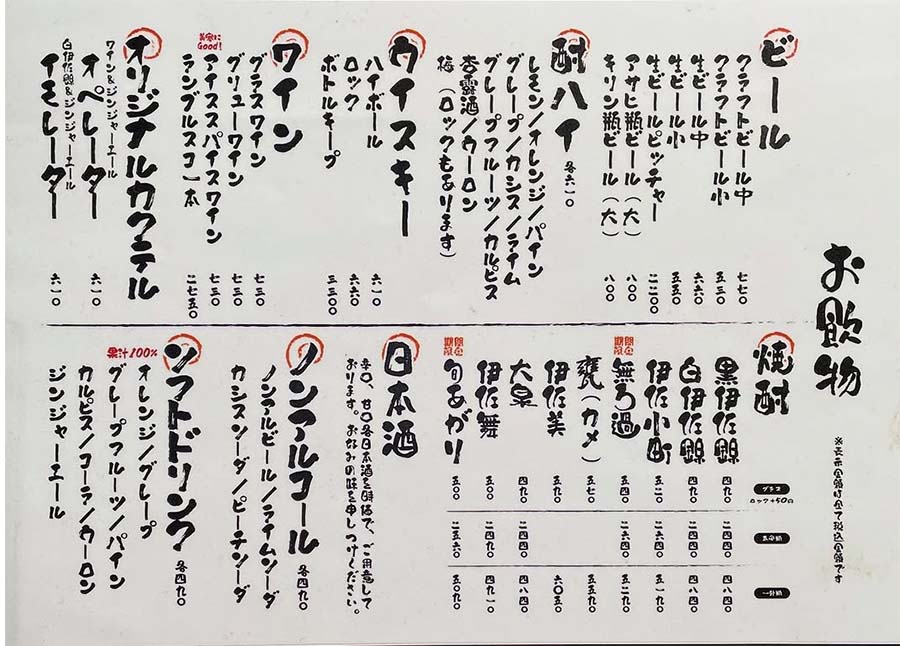 お飲物
※表示金額は全て税込金額です
ビール
クラフトビール中 七七〇
クラフトビール小 五三〇
生ビール中 六六〇
生ビール小 五五〇
生ビールピッチャー 二二〇〇
アサヒ瓶ビール(大) 八〇〇
キリン瓶ビール(大) 八〇〇
酎ハイ 各六一〇
レモン/オレンジ/パイン
グレープ/カシス/ライム
グレープフルーツ/カルピス
杏露酒/ウーロン
梅(ロックもあります)
ウイスキー
ハイボール 六一〇
ロック 六六〇
ボトルキープ 三三〇〇
ワイン
グラスワイン 七三〇
グリューワイン 七三〇
アイススパイスワイン 七三〇
ランブルスコ一本 二七五〇
オリジナルカクテル
ワイン&ジンジャーエール
オペレーター 六一〇
白伊佐錦&ジンジャーエール
イモレーター 六一〇
焼酎
グラス
ロック+50円
一升瓶
黒伊佐錦 四九〇 二四四〇 四八四〇
白伊佐錦 四九〇 二四四〇 四八四〇
伊佐小町 五二〇 二六四〇 五一九〇
期間限定
無ろ過 五四〇 二六四〇 五二九〇
甕(カメ) 五七〇 五五九〇
伊佐美 五九〇 六〇五〇
大泉 四九〇 二四四〇 四八四〇
伊佐舞 五〇〇 二四九〇 四九一〇
期間限定
旬あがり 五〇〇 二五六〇 五〇九〇
日本酒
辛口、甘口各日本酒を時価で、ご用意して
おります。お好みの味を申しつけください。
ノンアルコール 各四九〇
ノンアルビール/ライムソーダ
カシスソーダ/ピーチソーダ
ソフトドリンク 各四九〇
果汁100%
オレンジ/グレープ
グレープフルーツ/パイン
カルピス/コーラ/ウーロン
ジンジャーエール